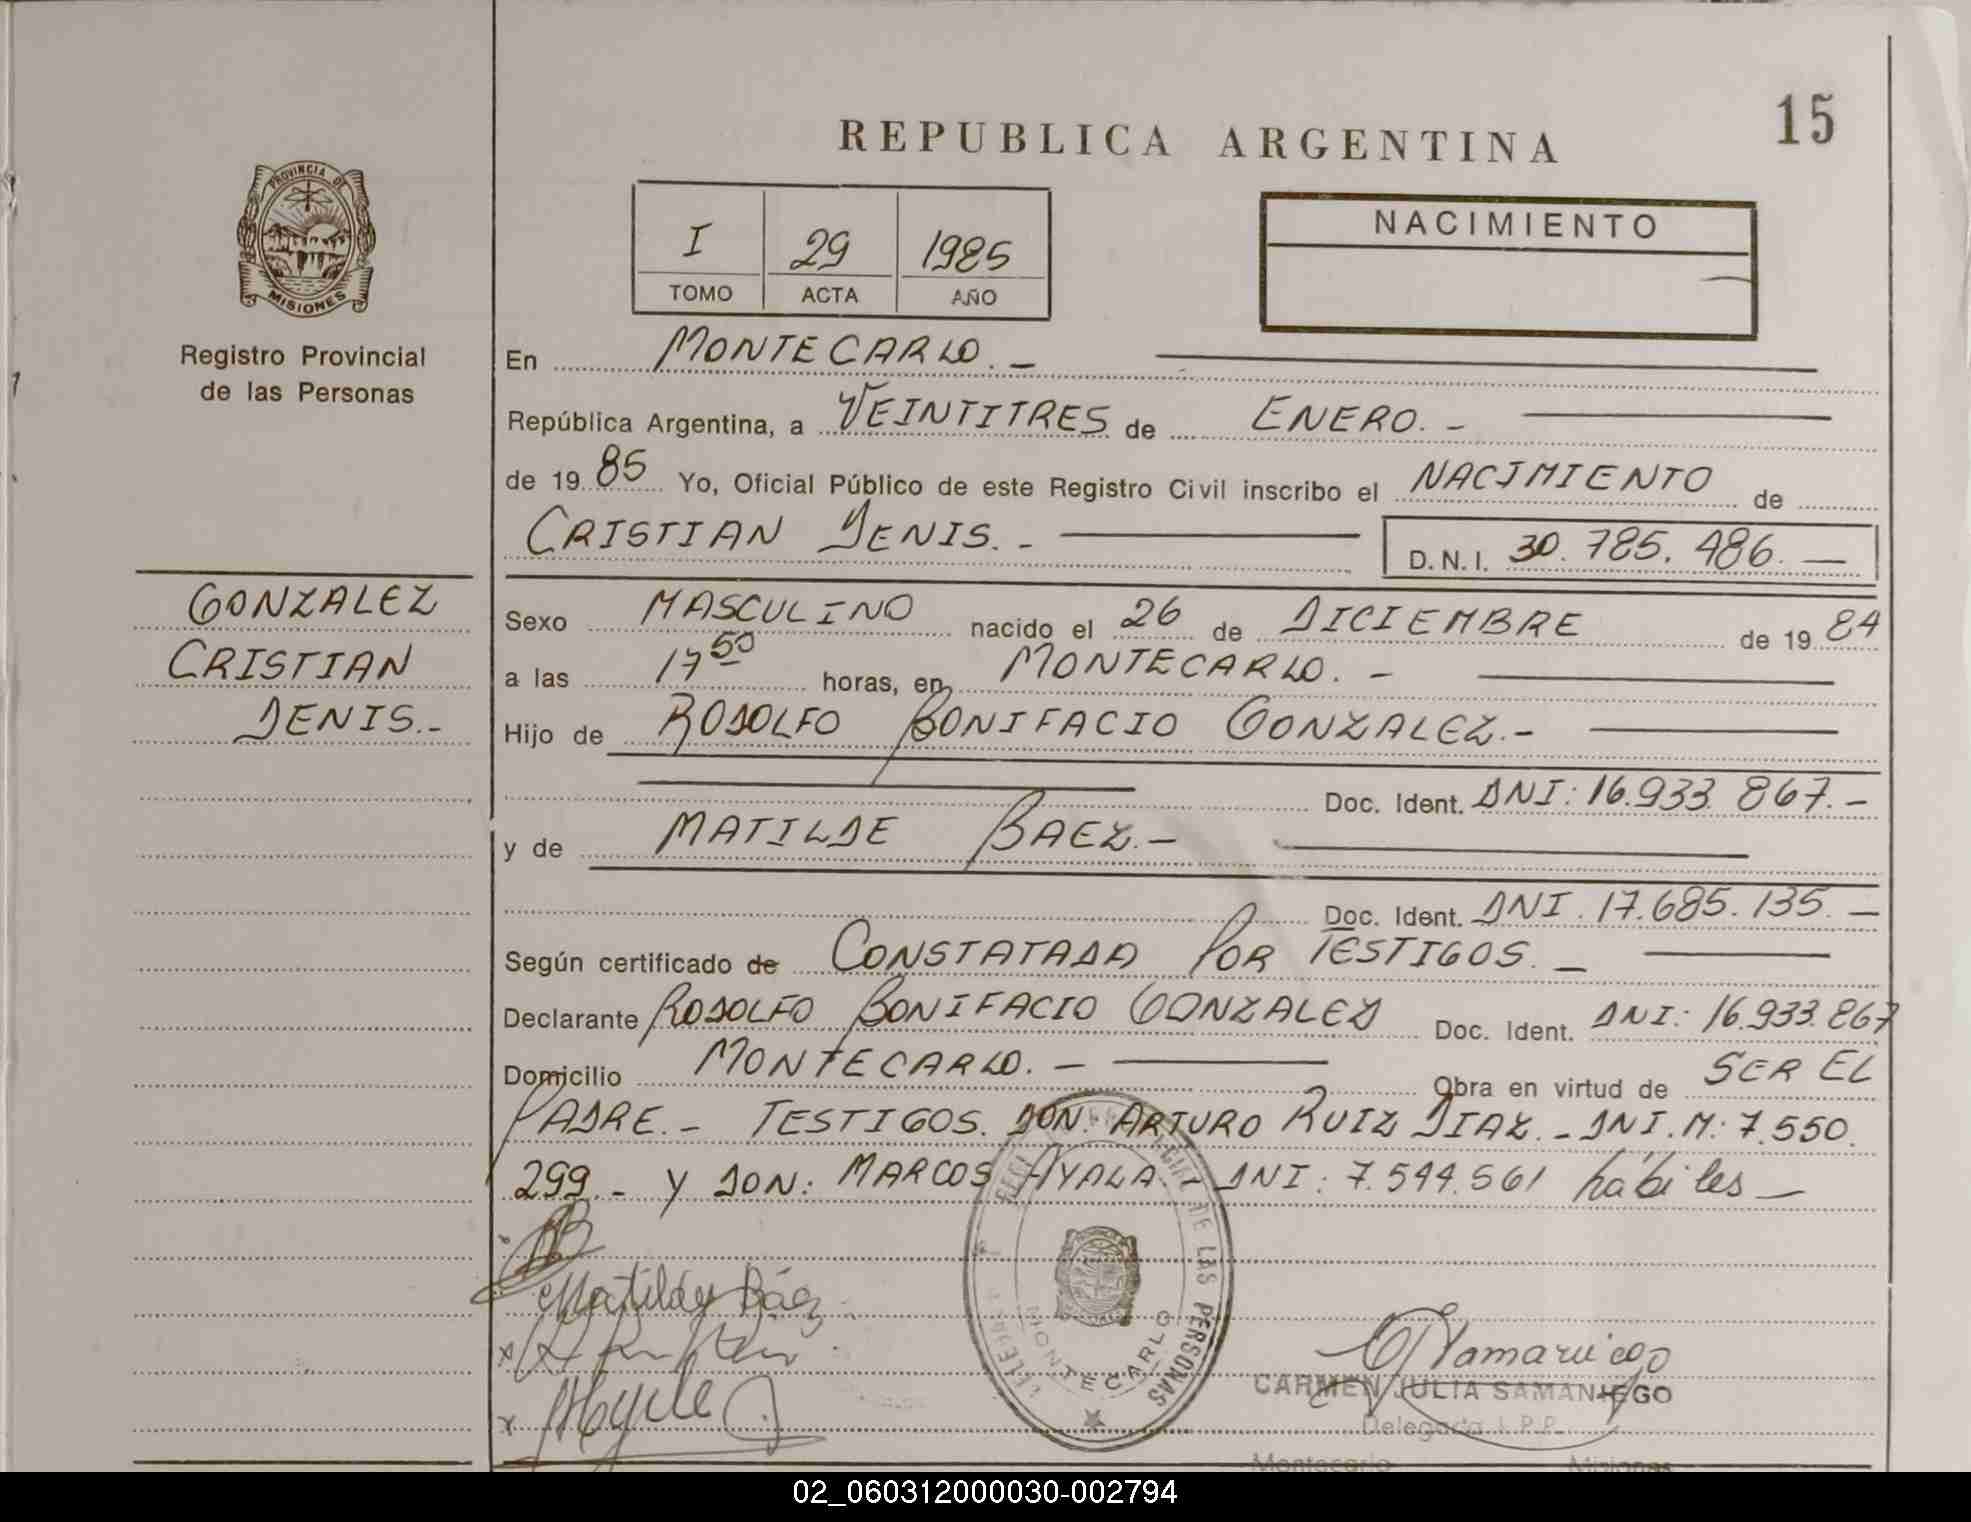 REPUBLICA ARGENTINA
15
PROVINCIA DE
MISIONES
Registro Provincial
de las Personas
I 29 1985
TOMO ACTA AÑO
NACIMIENTO
En MONTECARLO. -
República Argentina, a VEINTITRES de ENERO. -
de 19 85 Yo, Oficial Público de este Registro Civil inscribo el NACIMIENTO de
CRISTIAN DENIS. - D.N.I. 30.785.486. —
GONZALEZ
CRISTIAN
DENIS.-
Sexo MASCULINO nacido el 26 de DICIEMBRE de 19 84
a las 17 50 horas, en MONTECARLO. -
Hijo de RODOLFO BONIFACIO GONZALEZ.-
Doc. Ident. DNI: 16.933.867.-
y de MATILDE BAEZ.-
Doc. Ident. DNI. 17.685.135. —
Según certificado de CONSTATADA POR TESTIGOS. -
Declarante RODOLFO BONIFACIO GONZALEZ Doc. Ident. DNI: 16.933.867
Domicilio MONTECARLO. - Obra en virtud de SER EL
PADRE.- TESTIGOS. DON: ARTURO RUIZ DIAZ.- DNI.M: 7.550.
299.- Y DON: MARCOS AYALA.- DNI: 7.544.561 hábiles —
Matilde Báez
DE LAS PERSONAS
MONTECARLO
CARMEN JULIA SAMANIEGO
Delegada
Montecarlo Misiones
02_060312000030-002794